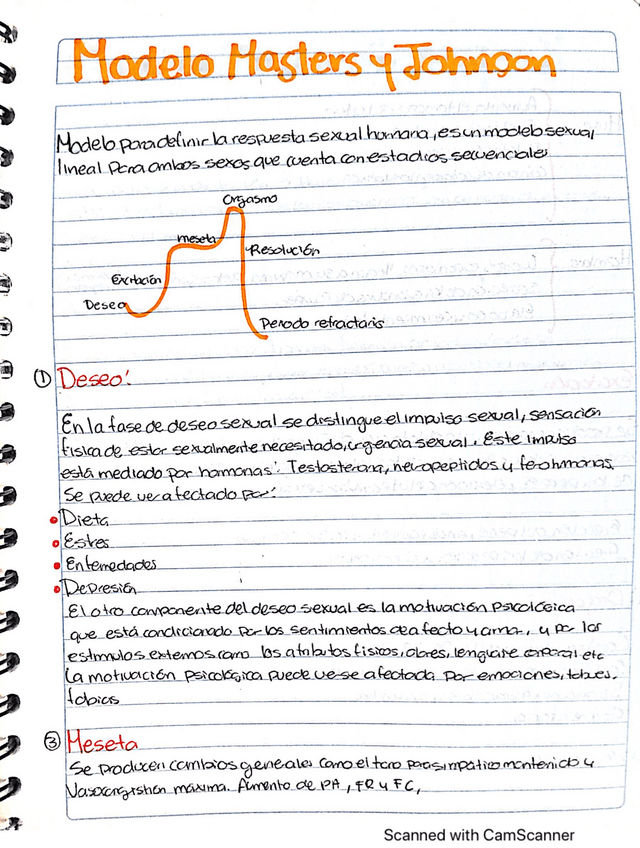 Modelo Masters y Johnson
Modelo para definir la respuesta sexual humana, es un modelo sexual
lineal para ambos sexos que cuenta con estadios secuenciales
Orgasmo
meseta
Resolución
Excitación
Deseo
Periodo refractario
① Deseo:
En la fase de deseo sexual se distingue el impulso sexual, sensación
física de estar sexualmente necesitado, urgencia sexual. Este impulso
está mediado por hormonas: Testosterona, neuropeptidos y ferohmonas.
Se puede ver afectado por:
• Dieta
• Estres
• Enfermedades
• Depresión
El otro componente del deseo sexual es la motivación psicológica
que está condicionado por los sentimientos de afecto y amor, y por los
estímulos externos como los atributos físicos, olores, lenguaje corporal etc
La motivación psicológica puede verse afectada por emociones, tabúes,
fobias
③ Meseta
Se producen cambios generales como el tono parasimpático mantenido y
Vasocongestión máxima. Aumento de PA, FR y FC,
Scanned with CamScanner